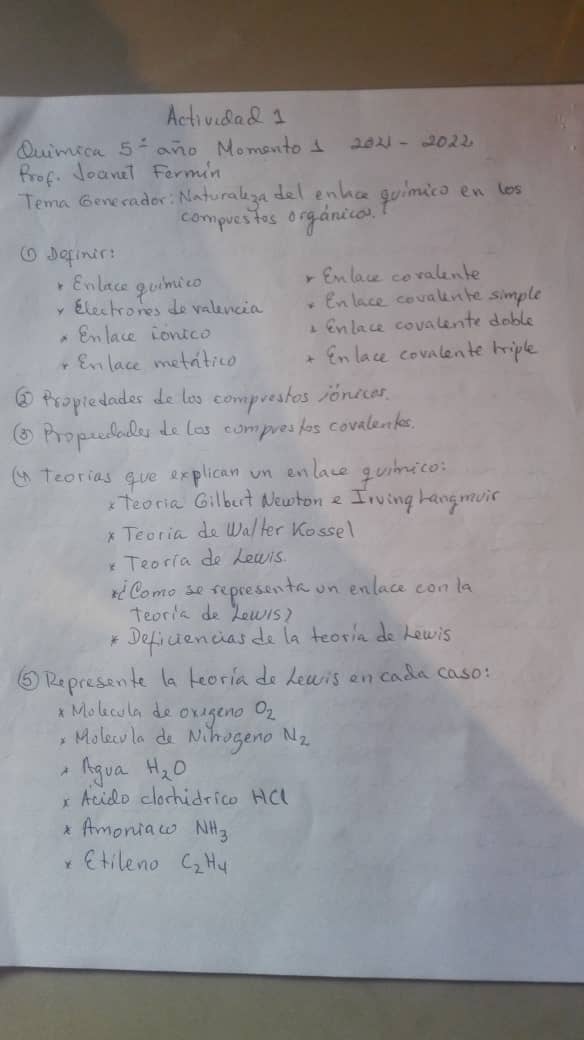 Actividad 1
Química 5º año Momento 1 2021 - 2022
Prof. Joanet Fermín
Tema Generador: Naturaleza del enlace químico en los
compuestos orgánicos.
① Definir:
* Enlace químico
* Electrones de valencia
* Enlace iónico
* Enlace metálico
* Enlace covalente
* Enlace covalente simple
* Enlace covalente doble
* Enlace covalente triple
② Propiedades de los compuestos iónicos.
③ Propiedades de los compuestos covalentes.
④ Teorías que explican un enlace químico:
* Teoría Gilbert Newton e Irving Langmuir
* Teoría de Walter Kossel
* Teoría de Lewis.
* ¿Como se representa un enlace con la
teoría de Lewis?
* Deficiencias de la teoría de Lewis
⑤ Represente la teoría de Lewis en cada caso:
* Molecula de oxigeno O₂
* Molecula de Nitrogeno N₂
* Agua H₂O
* Acido clorhidrico HCl
* Amoniaco NH₃
* Etileno C₂H₄